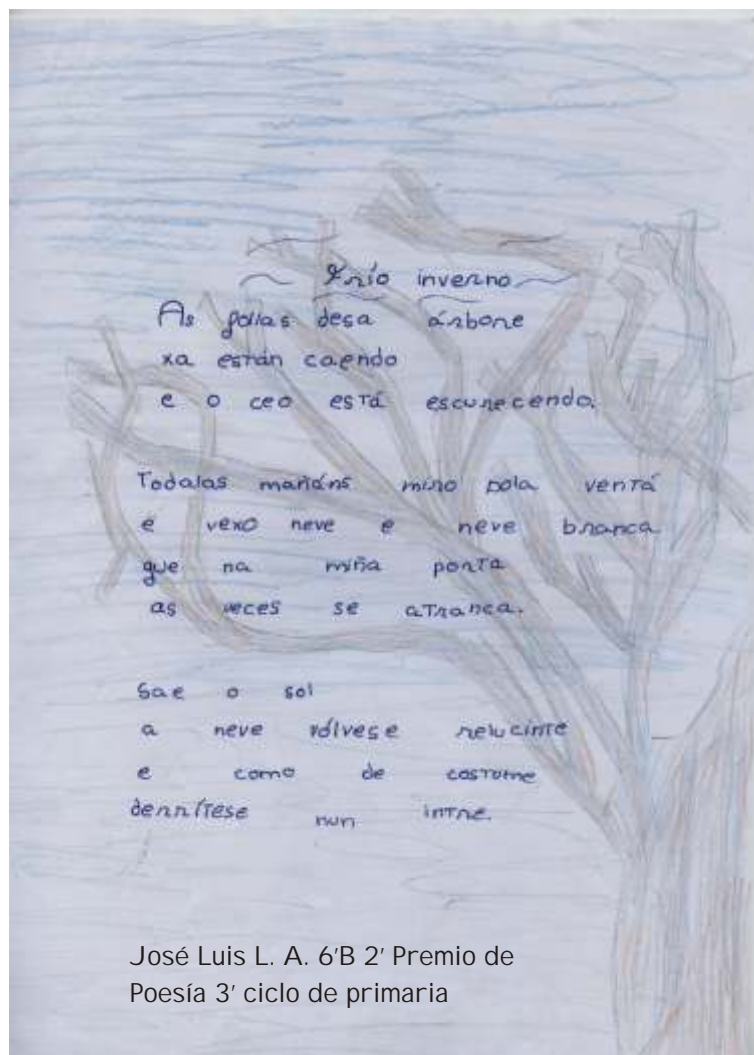 Frío inverno
As follas desa árbore
xa están caendo
e o ceo está escurecendo.
Todalas mañáns miro pola ventá
e vexo neve e neve branca
que na miña porta
as veces se atranca.
Sae o sol
a neve vólvese relucinte
e como de costume
derrítese nun intre.
José Luis L. A. 6'B 2' Premio de
Poesía 3' ciclo de primaria